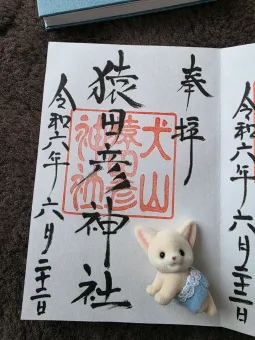 奉拝
猿田彦神社
犬山
猿田彦
神社
令和六年六月二十二日
令和六年六月二十二日